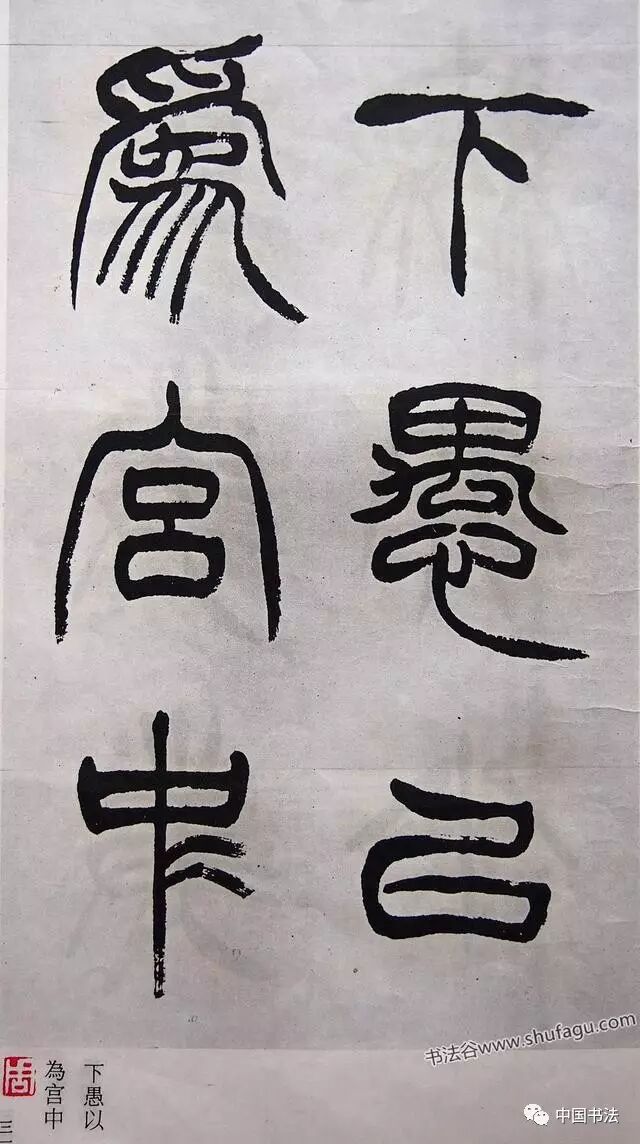 下愚㠯
爲宮中
下愚以
為宫中
书法谷www.shufagu.com
中国书法